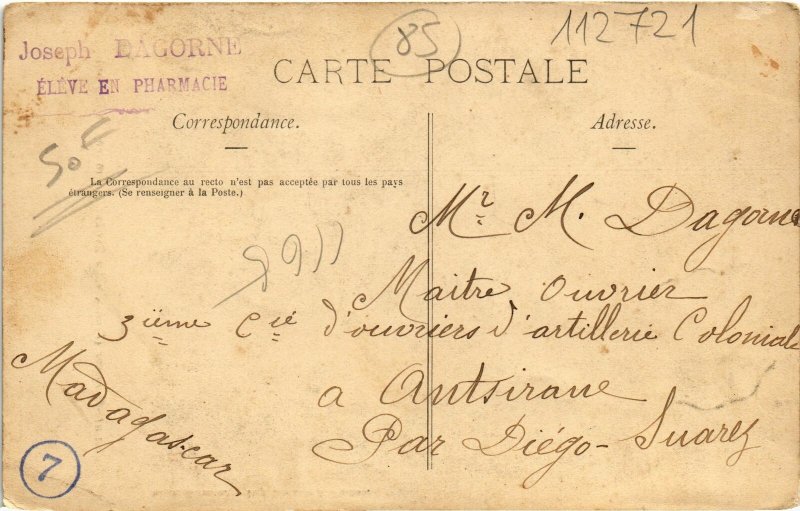 Joseph DAGORNE
ÉLÈVE EN PHARMACIE
85
112721
CARTE POSTALE
Correspondance.
Adresse.
La Correspondance au recto n'est pas acceptée par tous les pays
étrangers. (Se renseigner à la Poste.)
Mr M. Dagorne
Maitre ouvrier
3ième Cie d'ouvriers d'artillerie Coloniale
a Antsirane
Par Diégo-Suarez
Madagascar
7